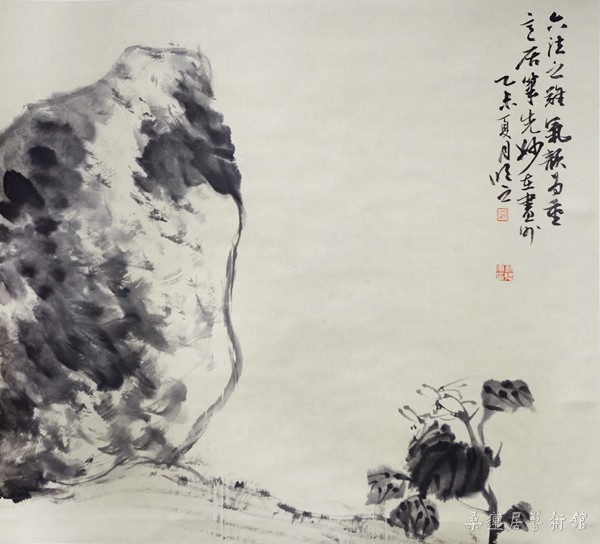 六法之難氣韻為重
意居筆先妙在畫外
乙未夏月
桑蓮居藝術館